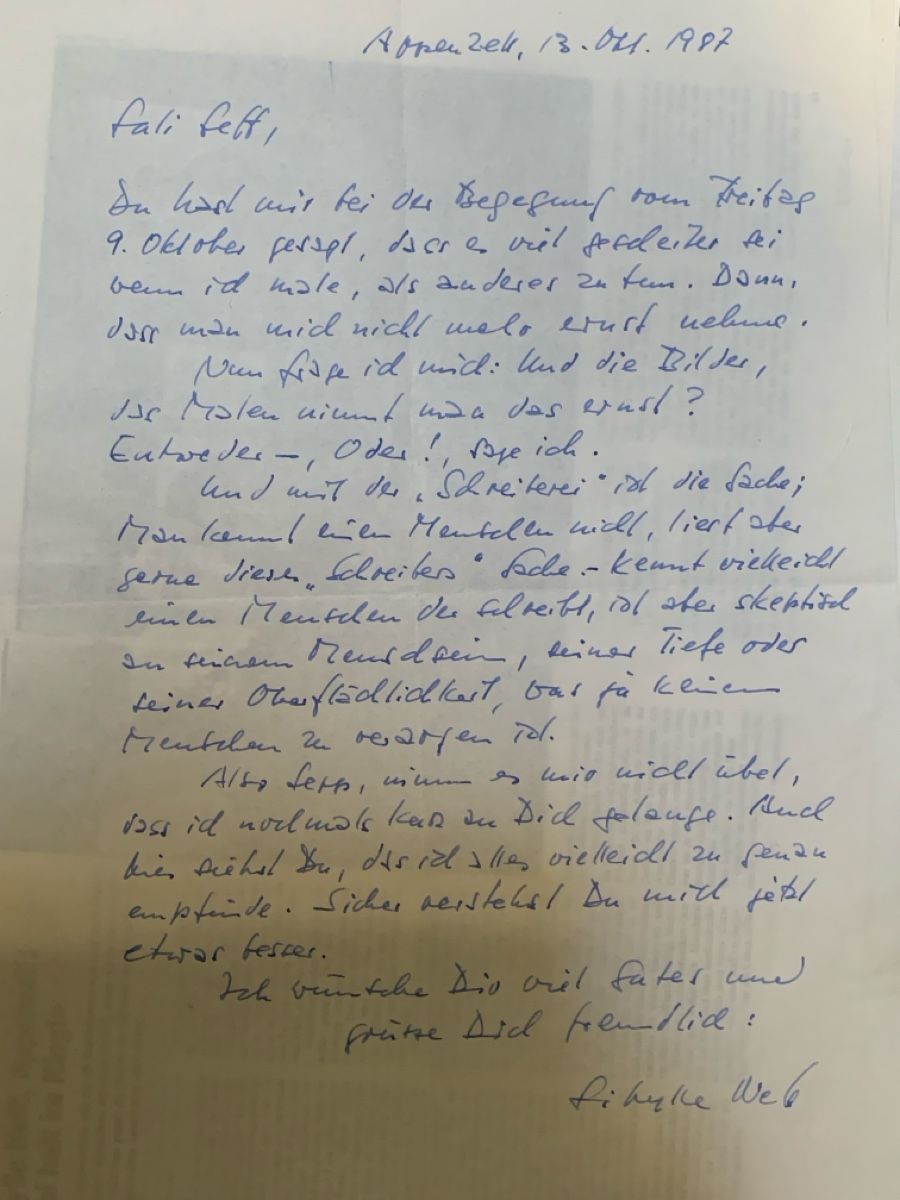 Appenzell, 13. Okt. 1987
Sali Seff,
Du hast mir bei der Begegnung vom Freitag
9. Oktober gesagt, dass es viel gescheiter sei
wenn ich male, als anderes zu tun. Dann,
dass man mich nicht mehr ernst nehme.
Nun frage ich mich: Und die Bilder,
das Malen nimmt man das ernst?
Entweder –, Oder!, sage ich.
Und mit der „Schreiberei“ ist die Sache;
Man kennt einen Menschen nicht, liest aber
gerne dieses „Schreibers“ Sache. – Kennt vielleicht
einen Menschen der schreibt, ist aber skeptisch
an seinem Menschsein, seiner Tiefe oder
seiner Oberflächlichkeit, was ja keinem
Menschen zu verargen ist.
Also Sepp, nimm es mir nicht übel,
dass ich nochmals kurz an Dich gelange. Auch
hier siehst Du, das ich alles vielleicht zu genau
empfinde. Sicher verstehst Du mich jetzt
etwas besser.
Ich wünsche Dir viel Gutes und
grüsse Dich freundlich:
Sibylle